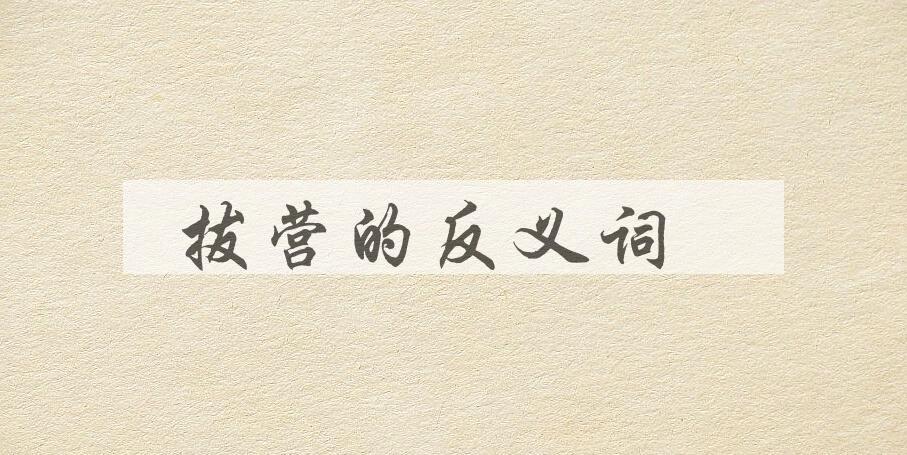 拔营的反义词